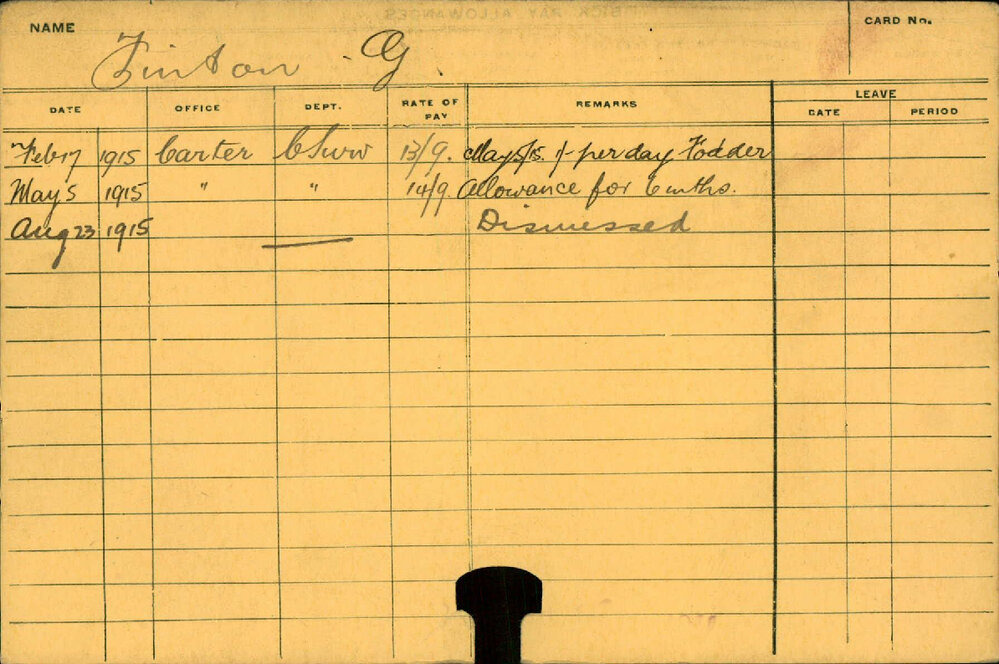 NAME
Finton G.
CARD No.
DATE OFFICE DEPT. RATE OF PAY REMARKS LEAVE
DATE PERIOD
Feb 17 1915 Carter 13/9. May 5/15. 1/- per day Fodder
May 5 1915 " " 14/9. Allowance for 6 mths.
Aug 23 1915 Dismissed